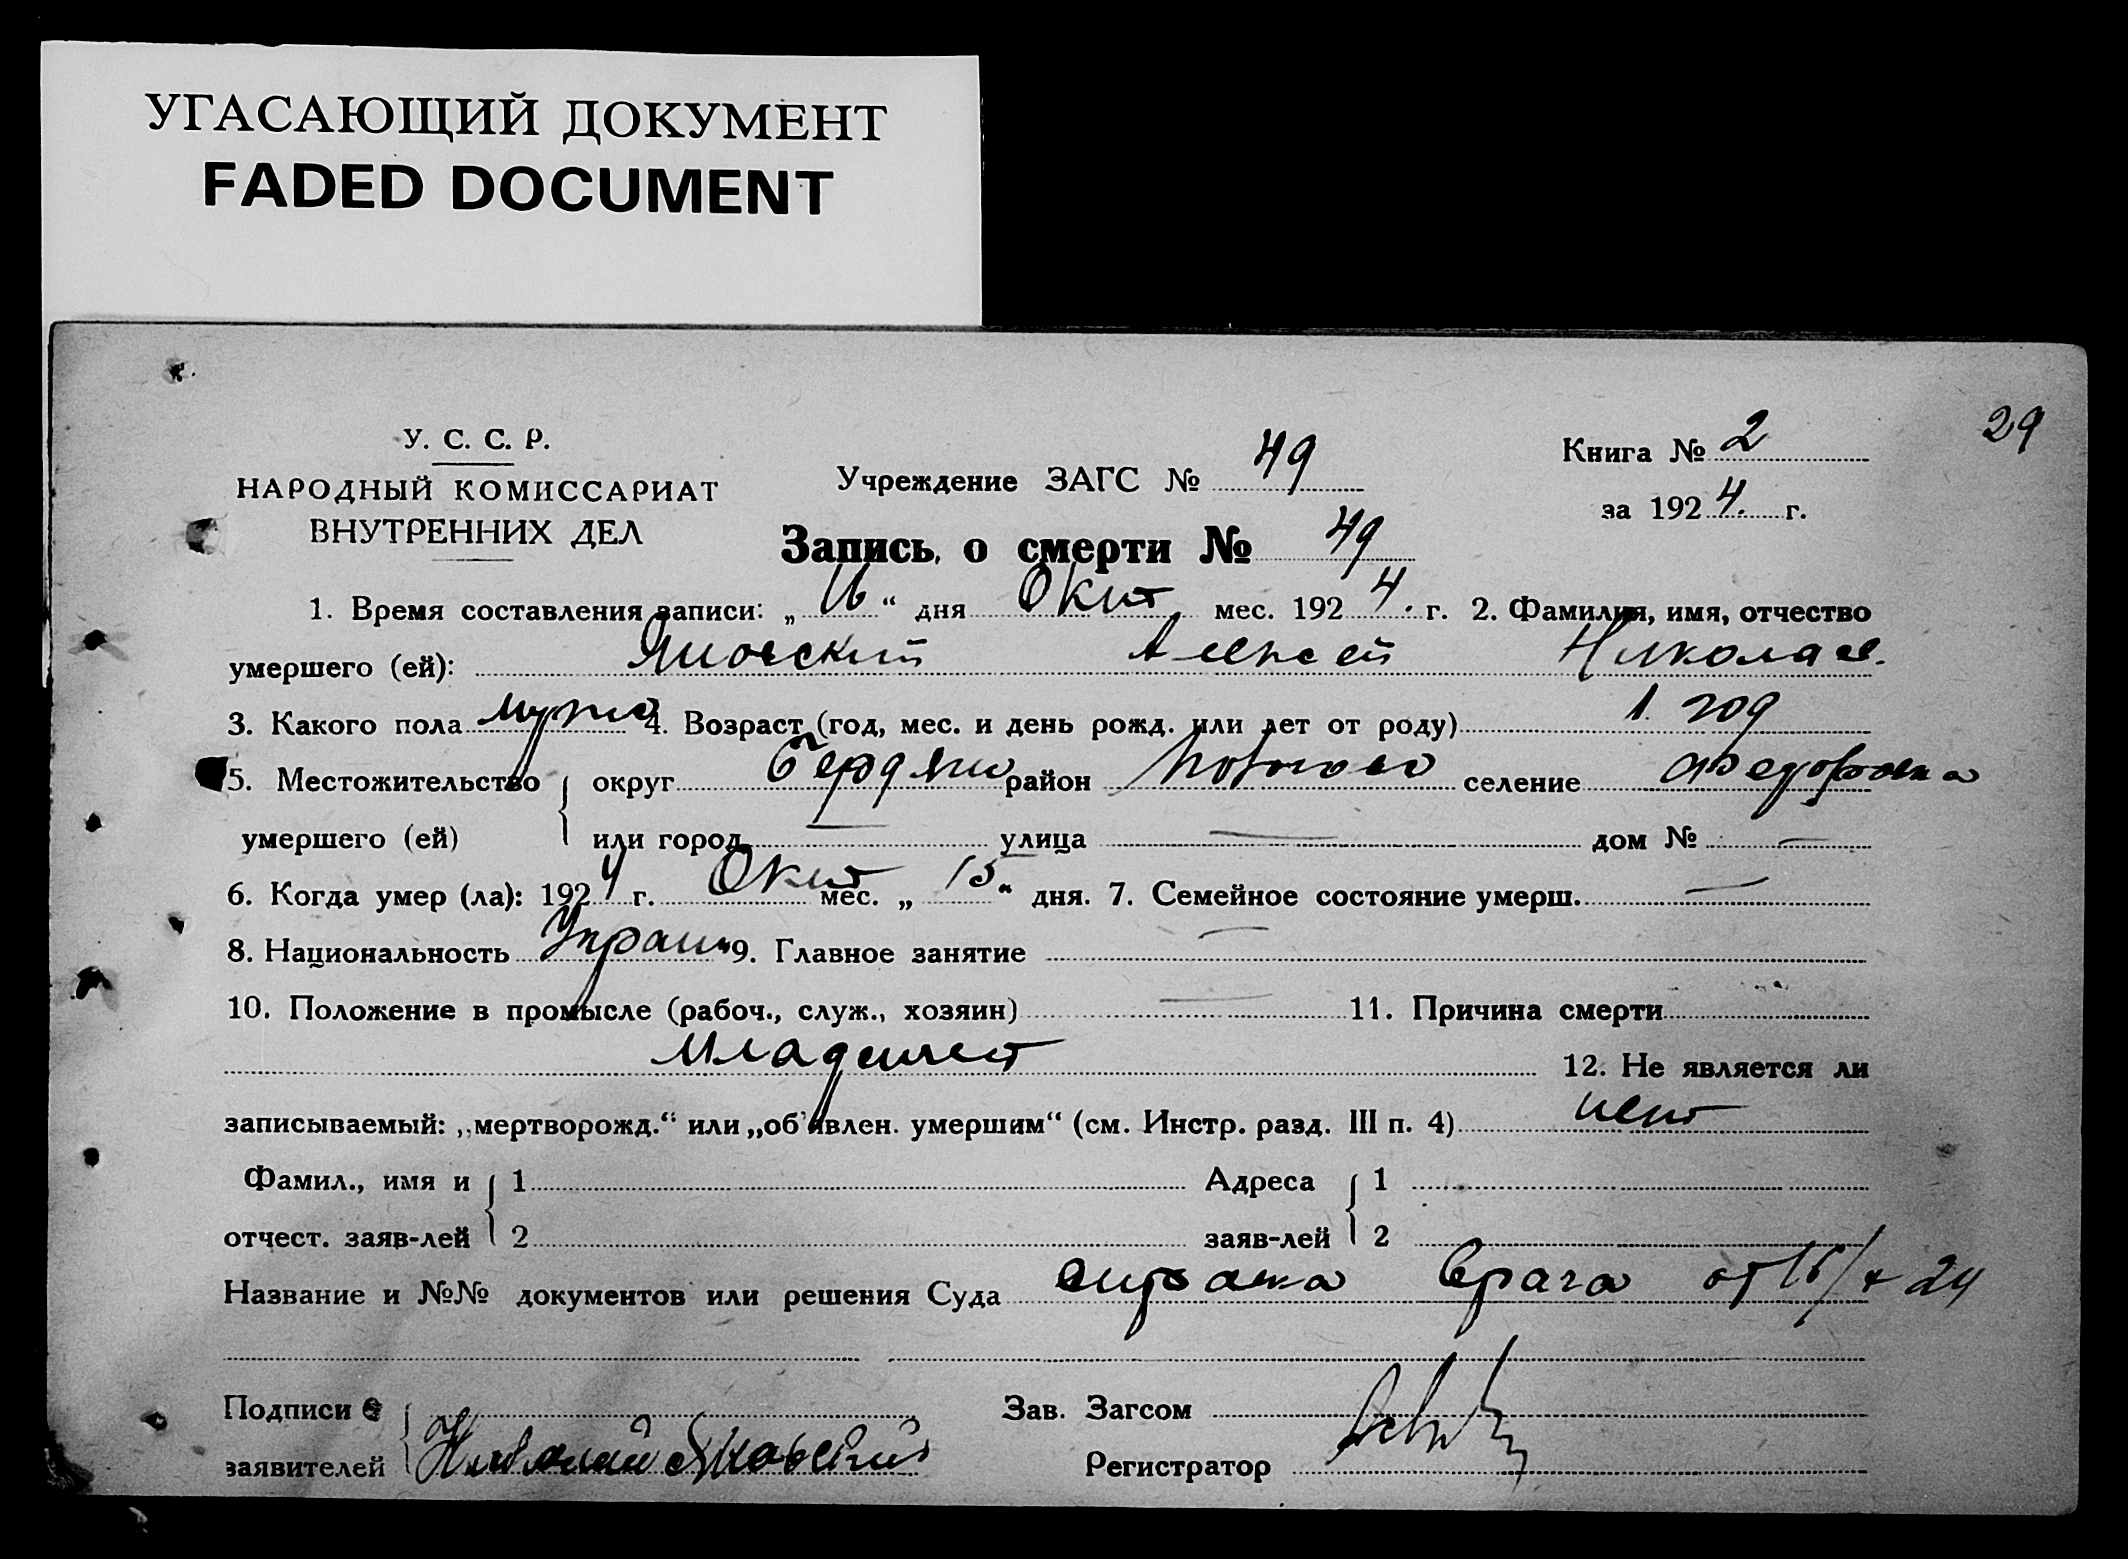 УГАСАЮЩИЙ ДОКУМЕНТ
FADED DOCUMENT
29
У. С. С. Р.
НАРОДНЫЙ КОМИССАРИАТ
ВНУТРЕННИХ ДЕЛ
Учреждение ЗАГС № 49
Книга № 2
за 1924. г.
Запись о смерти № 49
1. Время составления записи: „16“ дня Окт мес. 1924. г. 2. Фамилия, имя, отчество
умершего (ей): Яновский Алексей Николаев.
3. Какого пола мужс 4. Возраст (год, мес. и день рожд. или лет от роду) 1 год
5. Местожительство округ Бердянс район селение Федоровка
умершего (ей) или город — улица — дом № —
6. Когда умер (ла): 1924 г. Окт мес. „15“ дня. 7. Семейное состояние умерш. —
8. Национальность Украин 9. Главное занятие —
10. Положение в промысле (рабоч., служ., хозяин) — 11. Причина смерти
12. Не является ли
записываемый: „мертворожд.“ или „об'явлен. умершим“ (см. Инстр. разд. III п. 4) нет
Фамил., имя и 1 Адреса 1
отчест. заяв-лей 2 заяв-лей 2
Название и №№ документов или решения Суда справка врача от 24
Подписи Зав. Загсом
заявителей Николай Яновский Регистратор